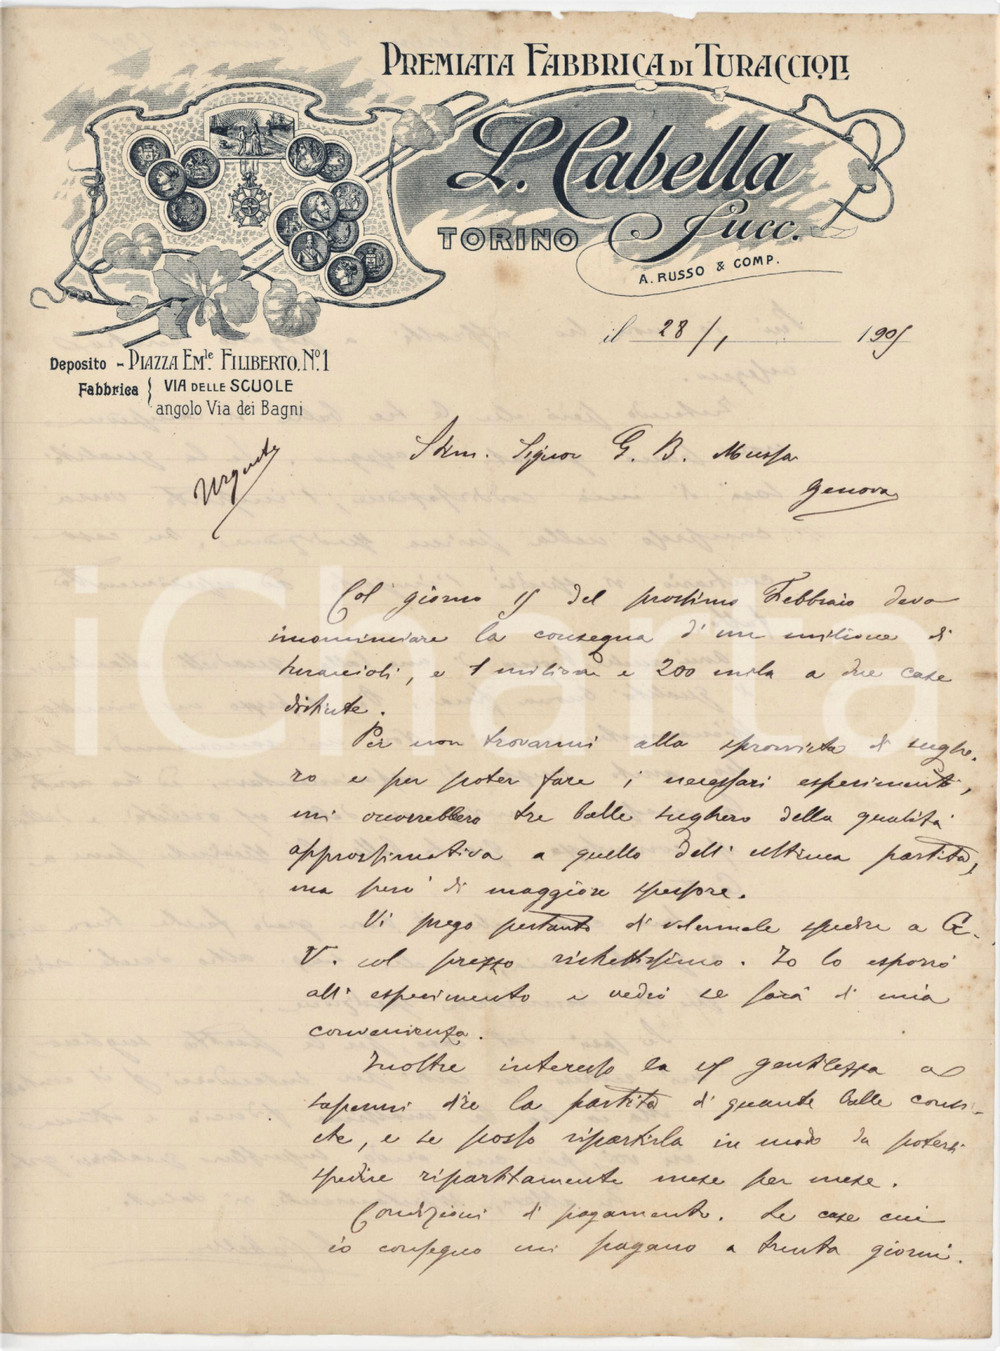 PREMIATA FABBRICA DI TURACCIOLI
L. Cabella
TORINO
Succ.
A. RUSSO & COMP.
il 28/1 1905
Deposito - PIAZZA EM.le FILIBERTO. N.o 1
Fabbrica { VIA DELLE SCUOLE
angolo Via dei Bagni
Urgente
Stim. Signor G. B. Mussa
Genova
Col giorno 15 del prossimo Febbraio devo
incominciare la consegna d'un milione di
turaccioli, e 1 milione e 200 mila a due case
distinte.
Per non trovarmi alla sprovvista di sughe-
ro e per poter fare i necessari esperimenti,
mi occorrebbero tre balle sughero della qualità
approssimativa a quello dell'ultima partita,
ma però di maggiore spessore.
Vi prego pertanto di spedire a G.
V. col prezzo ristrettissimo. Io lo esporrò
all'esperimento e vedrò se sarà di mia
convenienza.
Inoltre interesso la gentilezza a
sapermi dire la partita di quante balle consi-
ste, e se posso ripartirla in modo da potersi
spedire ripartitamente mese per mese.
Condizioni di pagamento. Le case cui
io consegno mi pagano a trenta giorni.
iCharta